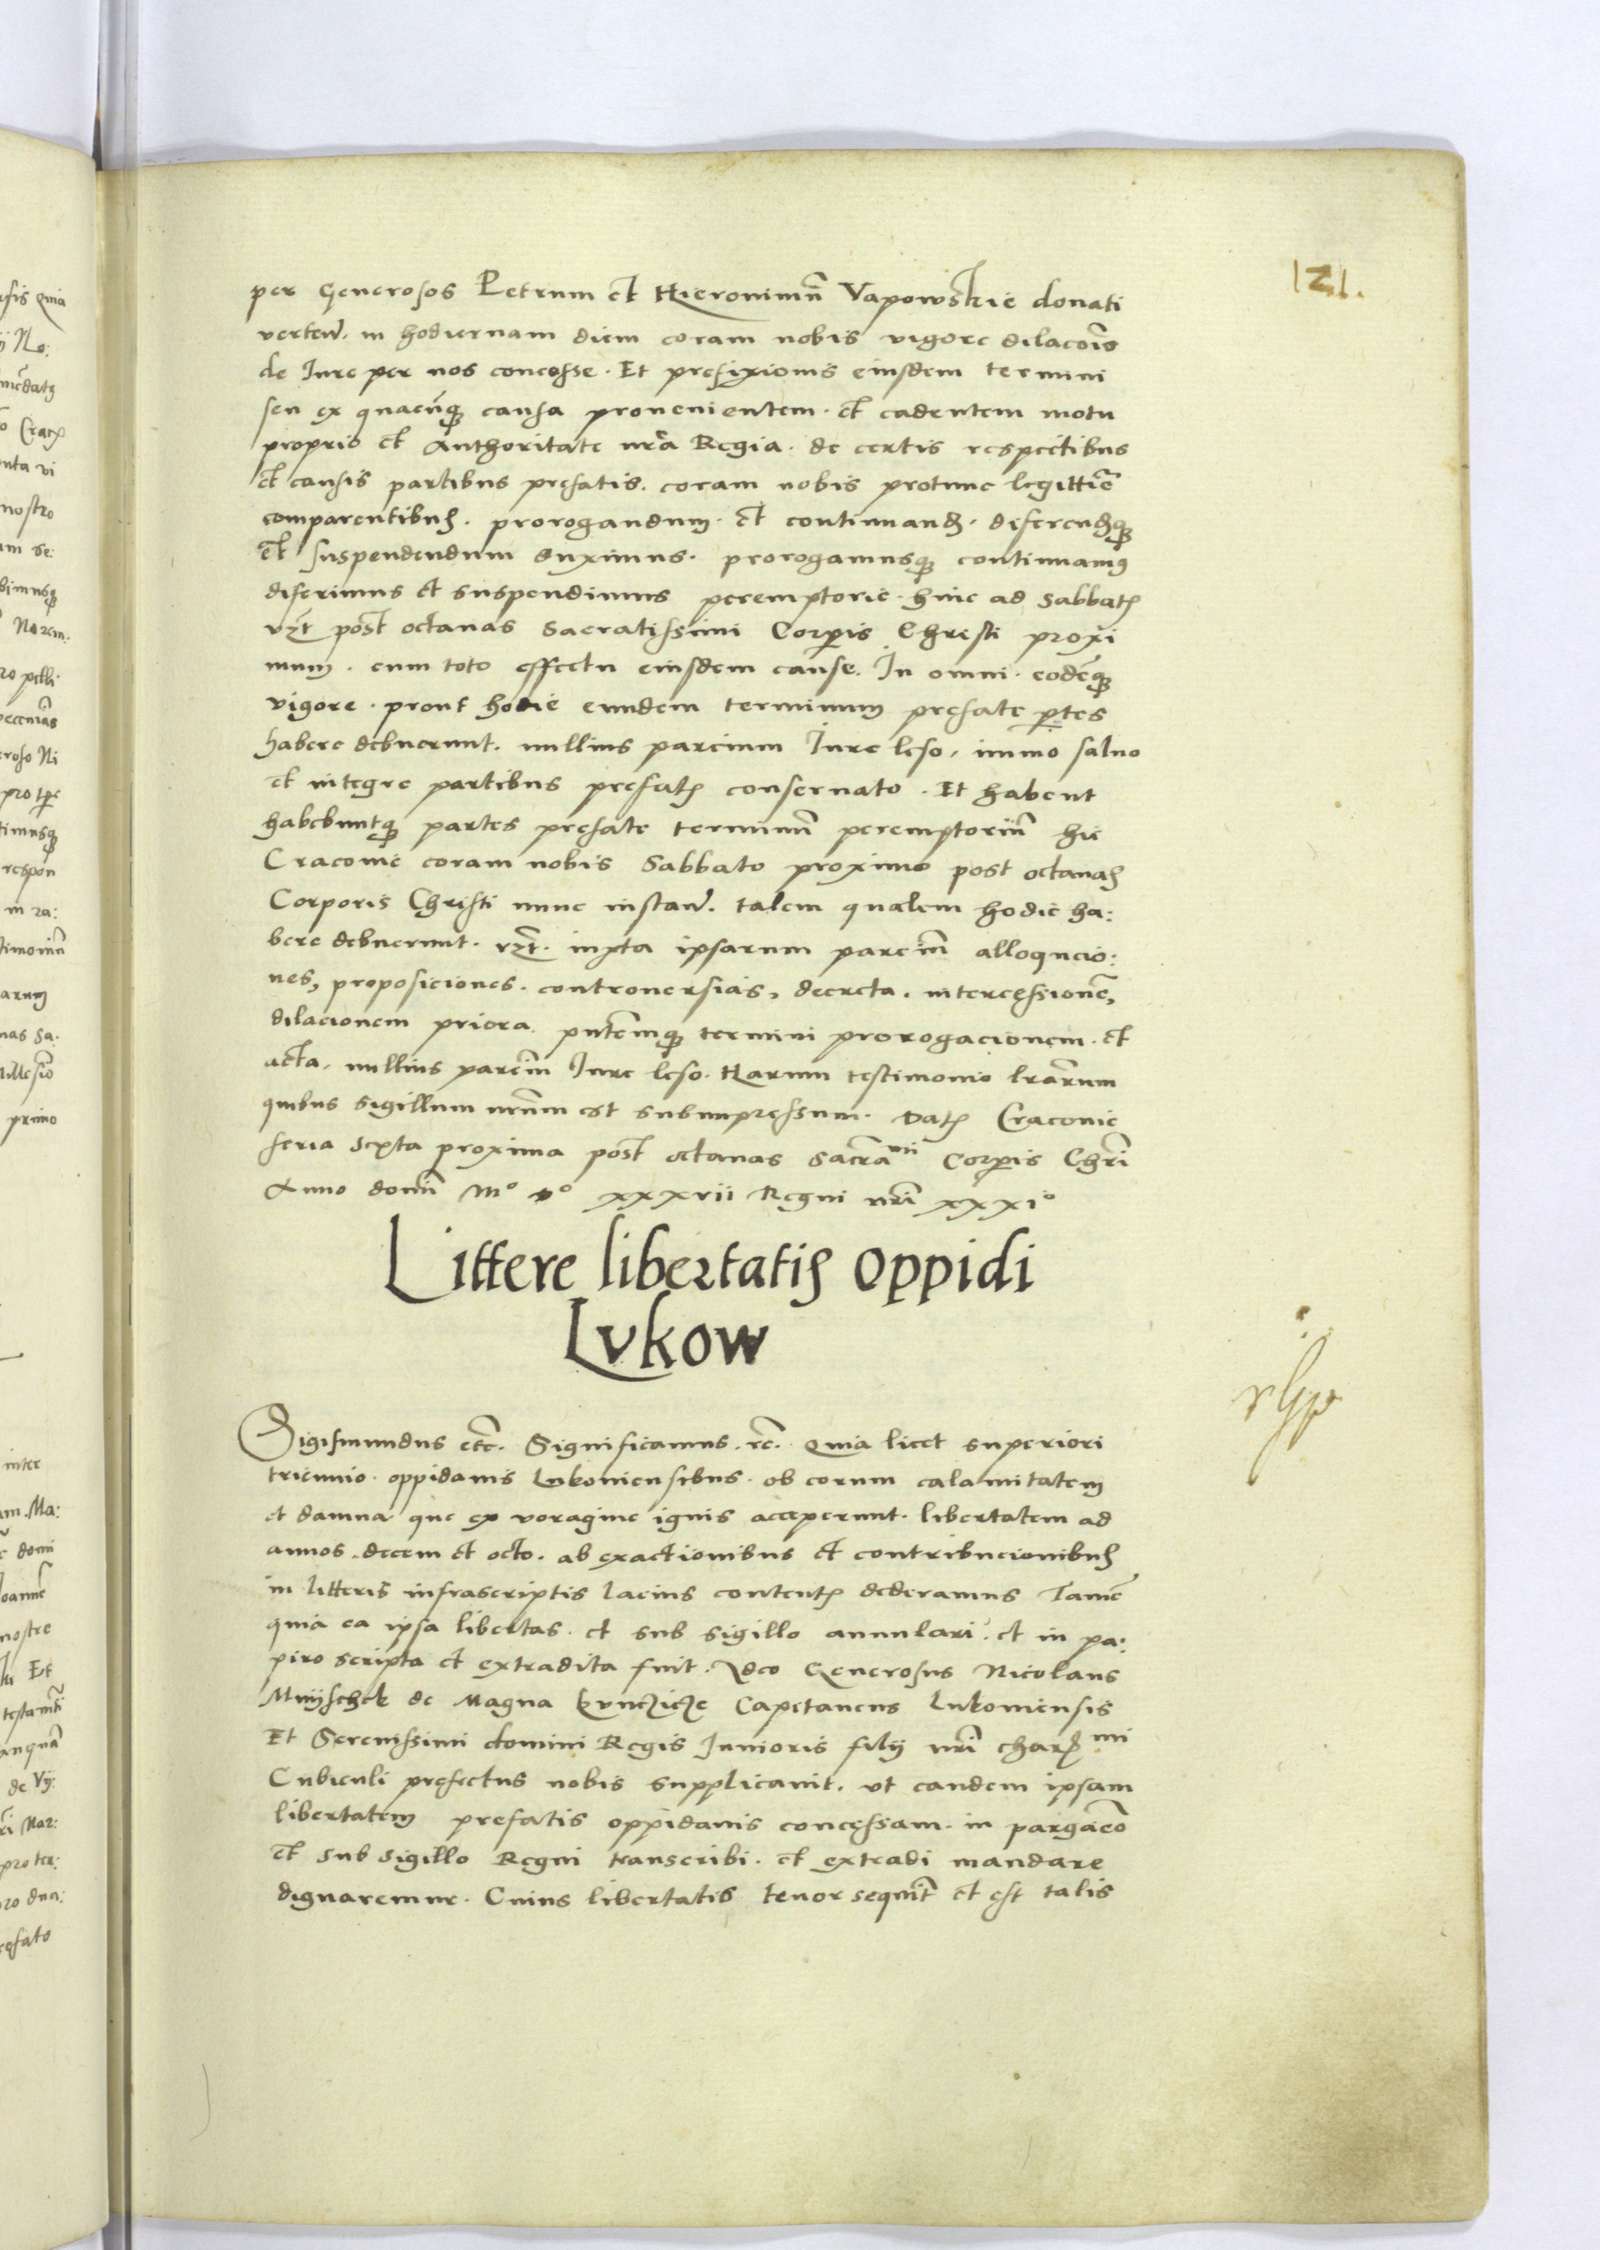 121.
per Generosos Petrum et Hieronimũ Vapowskie donati
verteñ. in hodiernam diem coram nobis vigore dilacõis
de Iure per nos concesse. Et prefixionis eiusdem termini
seu ex quacũq; causa provenientem. et cadentem motu
proprio et Authoritate nrã Regia. de certis respectibus
et causis partibus prefatis. coram nobis protunc legittiẽ
comparentibus. prorogandum. et continuand. diferendq;
et suspendendum duximus. prorogamusq; continuamus
diferimus et suspendimus peremptorie. hinc ad Sabbatu
vzt post octauas Sacratissimi Corpis Christi proxi
mum. cum toto effectu eiusdem cause. In omni. eodẽq;
vigore. prout hodie eundem terminum prefate ptes
habere debuerunt. nullius parcium Iure leso, immo saluo
et integre partibus prefatis conseruato. Et habent
habebuntq; partes prefate terminũ peremptoriũ hic
Cracouie coram nobis Sabbato proximo post octauas
Corporis Christi nunc instañ. talem qualem hodie ha:
bere debuerunt. vzt. iuxta ipsarum parciũ alloqucio:
nes, proposiciones. controuersias, decreta. intercessionẽ,
dilacionem priora pñtemq; termini prorogacionem. et
acta. nullius parciũ Iure leso. Harum testimonio lrãrum
quibus sigillum nrũm est subimpressum. Datum Cracouie
feria sexta proxima post octauas Sacrãmi Corpis Chrĩ
Anno domĩ Mº vº xxxvii Regni nrĩ xxxiº
Littere libertatis oppidi
Lvkow
Sigismundus etc. Significamus. rc. Quia licet superiori
triennio. oppidanis Lukouiensibus. ob eorum calamitatem
et damna que ex voragine ignis acceperunt. libertatem ad
annos. decem et octo. ab exactionibus et contribucionibus
in litteris infrascriptis lacius contentis dederamus Tamẽ
quia ea ipsa libertas. et sub sigillo annulari. et in pa:
piro scripta et extradita fuit. Ideo Generosus Nicolaus
Mnyschek de Magna kunczicze Capetaneus lukouiensis
Et Serenissimi domini Regis Iunioris filij nrĩ charmi
Cubiculi prefectus nobis supplicauit. vt eandem ipsam
libertatem prefatis oppidanis concessam. in pargãeo
et sub sigillo Regni transcribi. et extradi mandare
dignaremur. Cuius libertatis tenor sequit et est talis